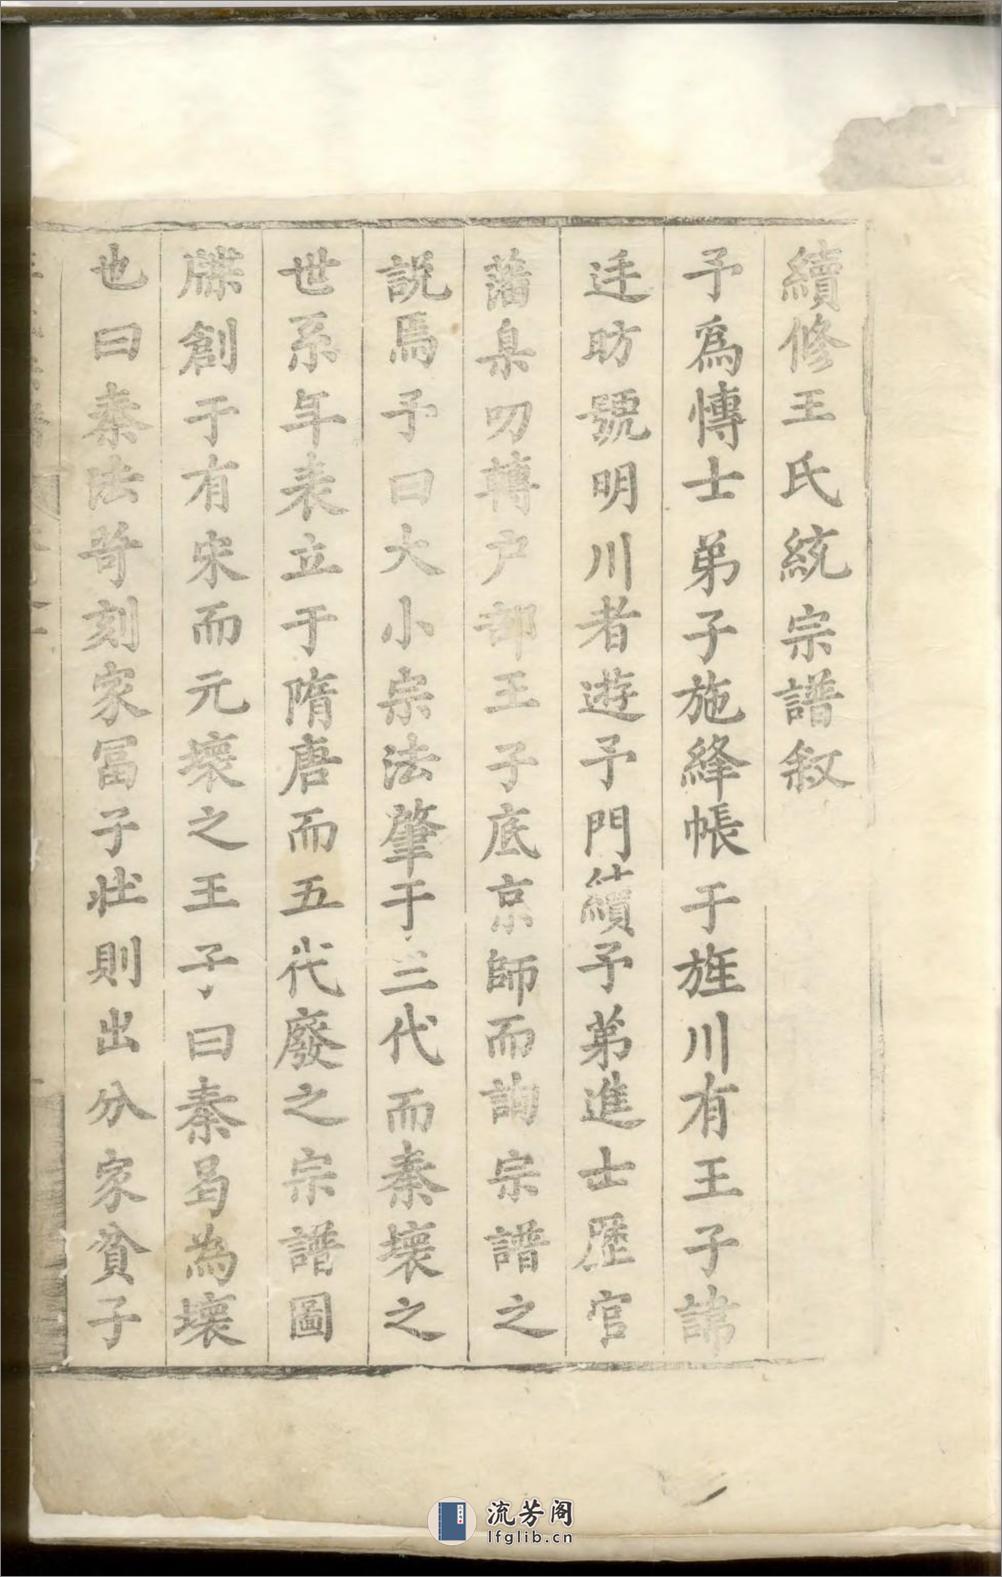 續修王氏統宗譜敘
予為愽士弟子施絳帳于旌川有王子諱
廷昉號明川者遊予門績予弟進士歷官
藩臬叨轉户部王子底京師而詢宗譜之
説焉予曰大小宗法肇于三代而秦壞之
世系年表立于隋唐而五代廢之宗譜圖
牒創于有宋而元壞之王子曰秦曷為壞
也曰秦法苛刻家冨子壯則出分家貧子
流芳阁
lfglib.cn